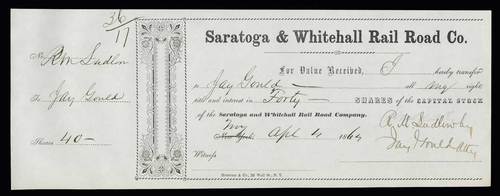 36
17
No. R M Ludlow
To Jay Gould
Shares 40 —
Saratoga & Whitehall Rail Road Co.
For Value Received, I hereby transfer
to Jay Gould — all my right
and interest in Forty — SHARES of the CAPITAL STOCK
of the Saratoga and Whitehall Rail Road Company.
Troy
New York, Apl 4 1864
R M Ludlow by
Jay Gould Atty
Witness